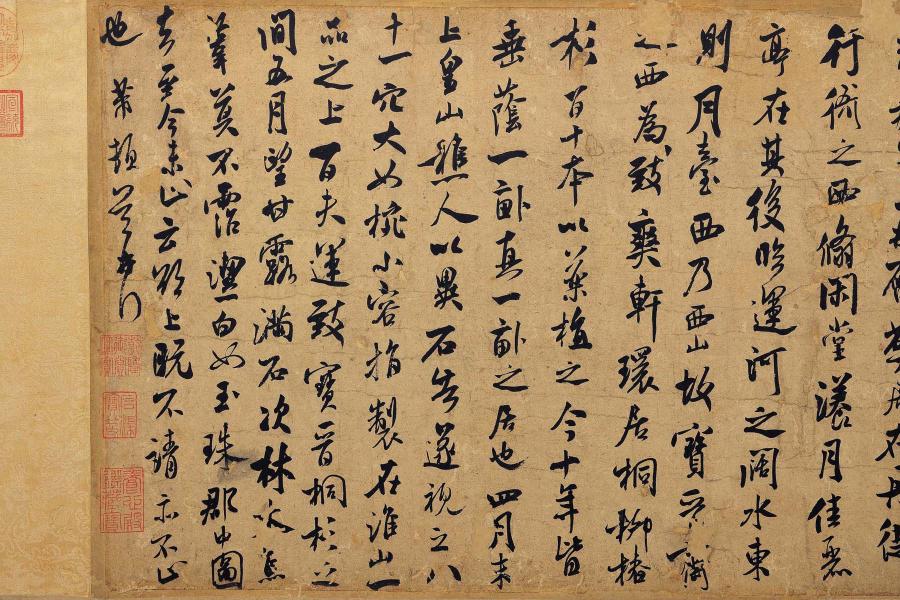 行衙之西翛閑堂漾月佳麗
亭在其後臨運河之闊水東
則月臺西乃西山故寶晉齋
之西為致爽軒環居桐柳椿
杉百十本以藥植之今十年皆
垂蔭一畝真一畝之居也四月末
上皇山樵人以異石告遂視之八
十一穴大如椀小容指製在淮山一
品之上百夫運致寶晉桐杉之
間五月望甘露滿石次林木焉
葦莫不霑潔白如玉珠郡中圖
去至今未止云欲上既不請亦不止
也 芾頓首